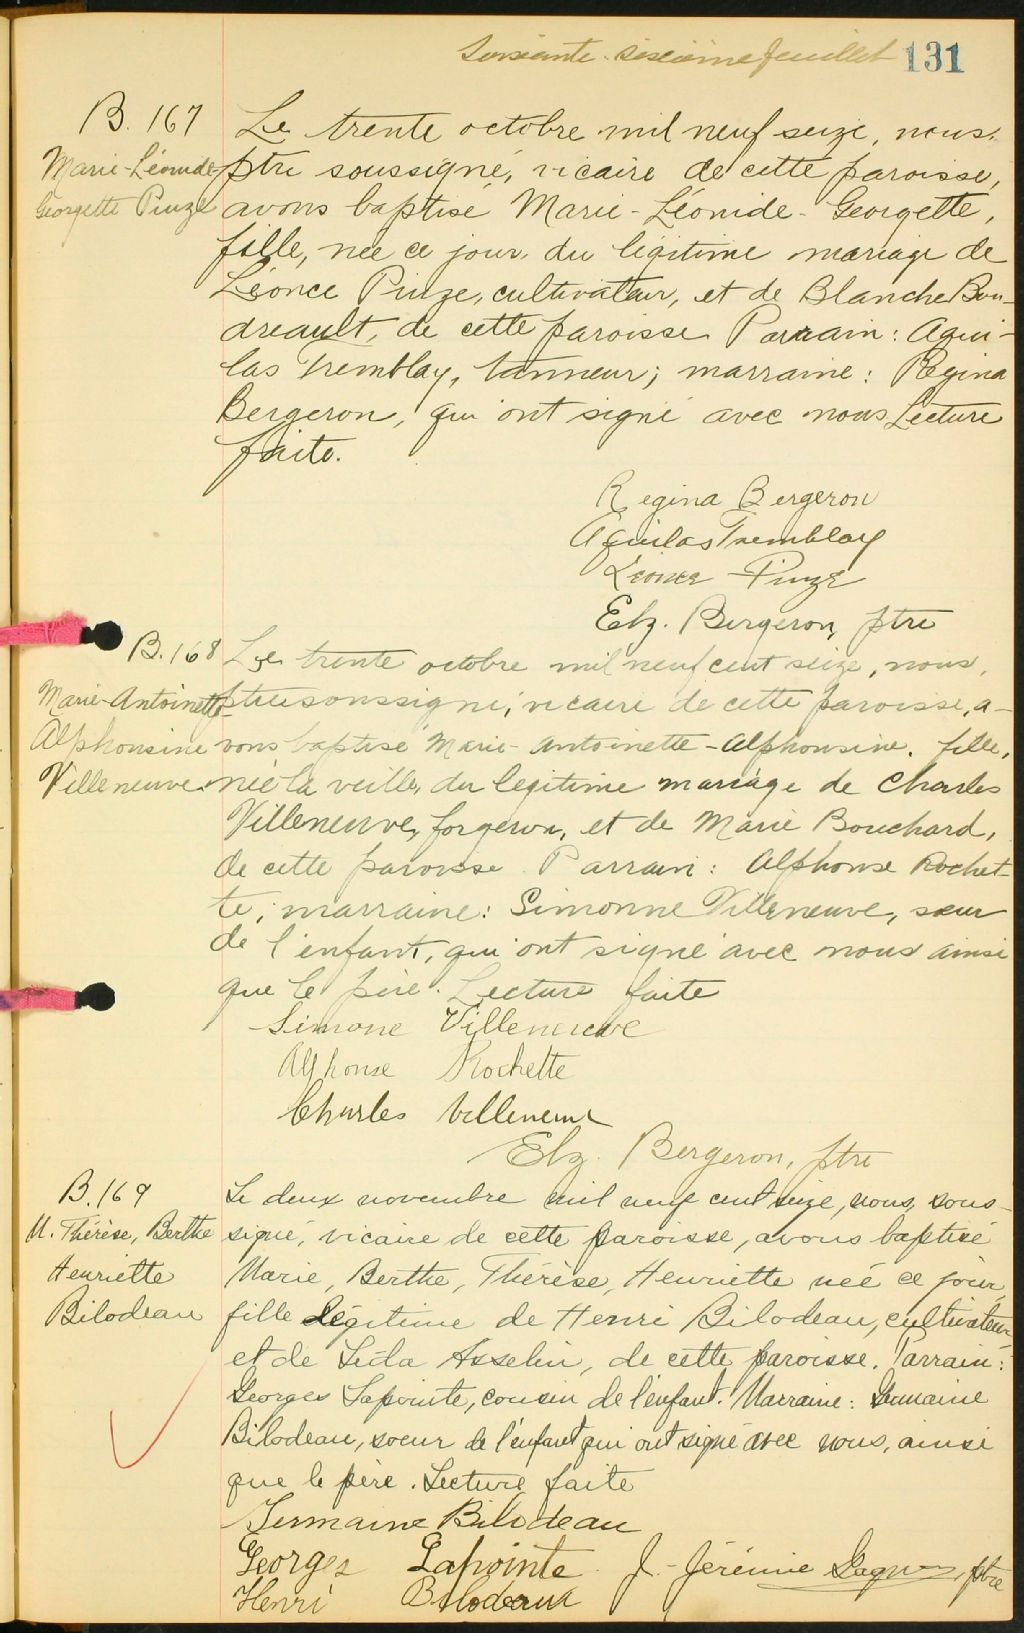 Soixante-sixième feuillet 131
B. 167
Marie-Léonide-
Georgette Pinze
Le trente octobre mil neuf seize, nous,
ptre soussigné, vicaire de cette paroisse,
avons baptisé Marie-Léonide-Georgette,
fille, née ce jour, du légitime mariage de
Léonce Pinze, cultivateur, et de Blanche Bou-
dreault, de cette paroisse Parrain: Aqui-
las Tremblay, tanneur; marraine: Régina
Bergeron, qui ont signé avec nous. Lecture
faite.
Regina Bergeron
Aquilas Tremblay
Léonce Pinze
Elz. Bergeron, ptre
B. 168
Marie-Antoinette-
Alphonsine
Villeneuve
Le trente octobre mil neuf cent seize, nous,
ptre soussigné, vicaire de cette paroisse, a-
vons baptisé Marie-Antoinette-Alphonsine, fille,
née la veille, du légitime mariage de Charles
Villeneuve, forgeron, et de Marie Bouchard,
de cette paroisse. Parrain: Alphonse Rochet-
te; marraine: Simonne Villeneuve, sœur
de l'enfant, qui ont signé avec nous ainsi
que le père. Lecture faite
Simone Villeneuve
Alphonse Rochette
Charles Villeneuve
Elz. Bergeron, ptre
B. 169
M. Thérèse, Berthe
Henriette
Bilodeau
Le deux novembre mil neuf cent seize, nous, sous-
signé, vicaire de cette paroisse, avons baptisé
Marie, Berthe, Thérèse, Henriette née ce jour,
fille légitime de Henri Bilodeau, cultivateur
et de Léda Asselin, de cette paroisse. Parrain:
Georges Lapointe, cousin de l'enfant. Marraine: Germaine
Bilodeau, soeur de l'enfant qui ont signé avec nous, ainsi
que le père. Lecture faite
Germaine Bilodeau
Georges Lapointe J.-Jérémie Gagnon, ptre
Henri Bilodeau